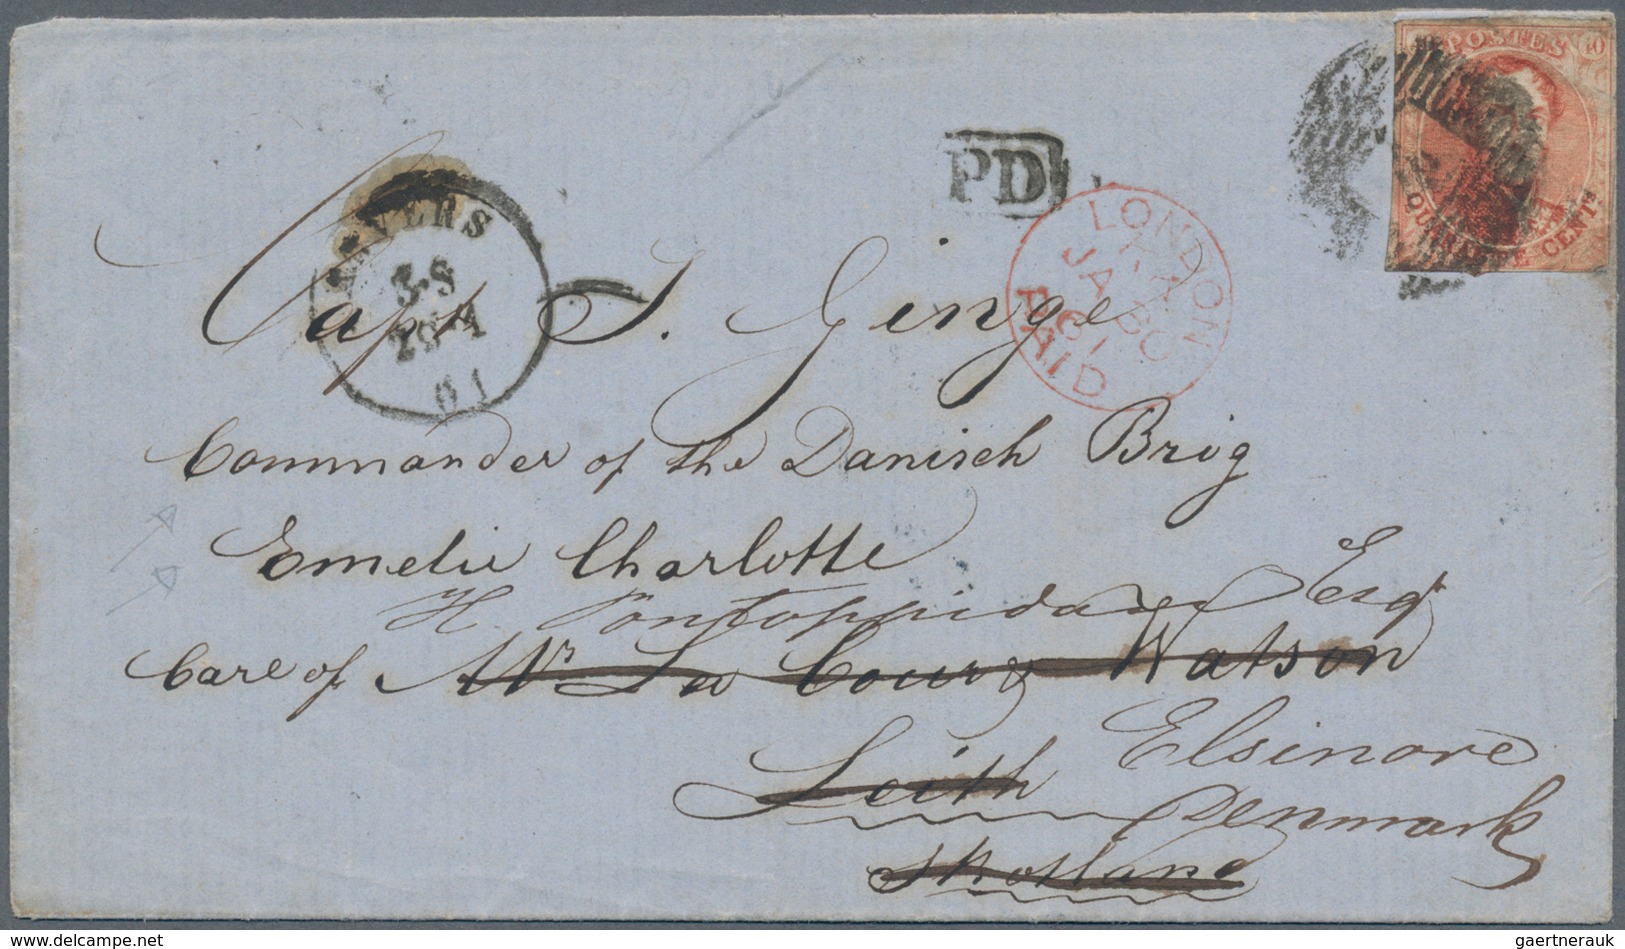 POSTES 40
QUARANTE CENTS
PD
ANVERS
3-S
29-1
61
LONDON
JA 30
61
PAID
Capt. J. Ginge
Commander of the Danisch Brig
Emelie Charlotte
H. Pontoppidan Esqr
Care of Mr La Coury Watson
Leith Elsinore
Denmark
Skottland
delcampe.net
gaertnerauk